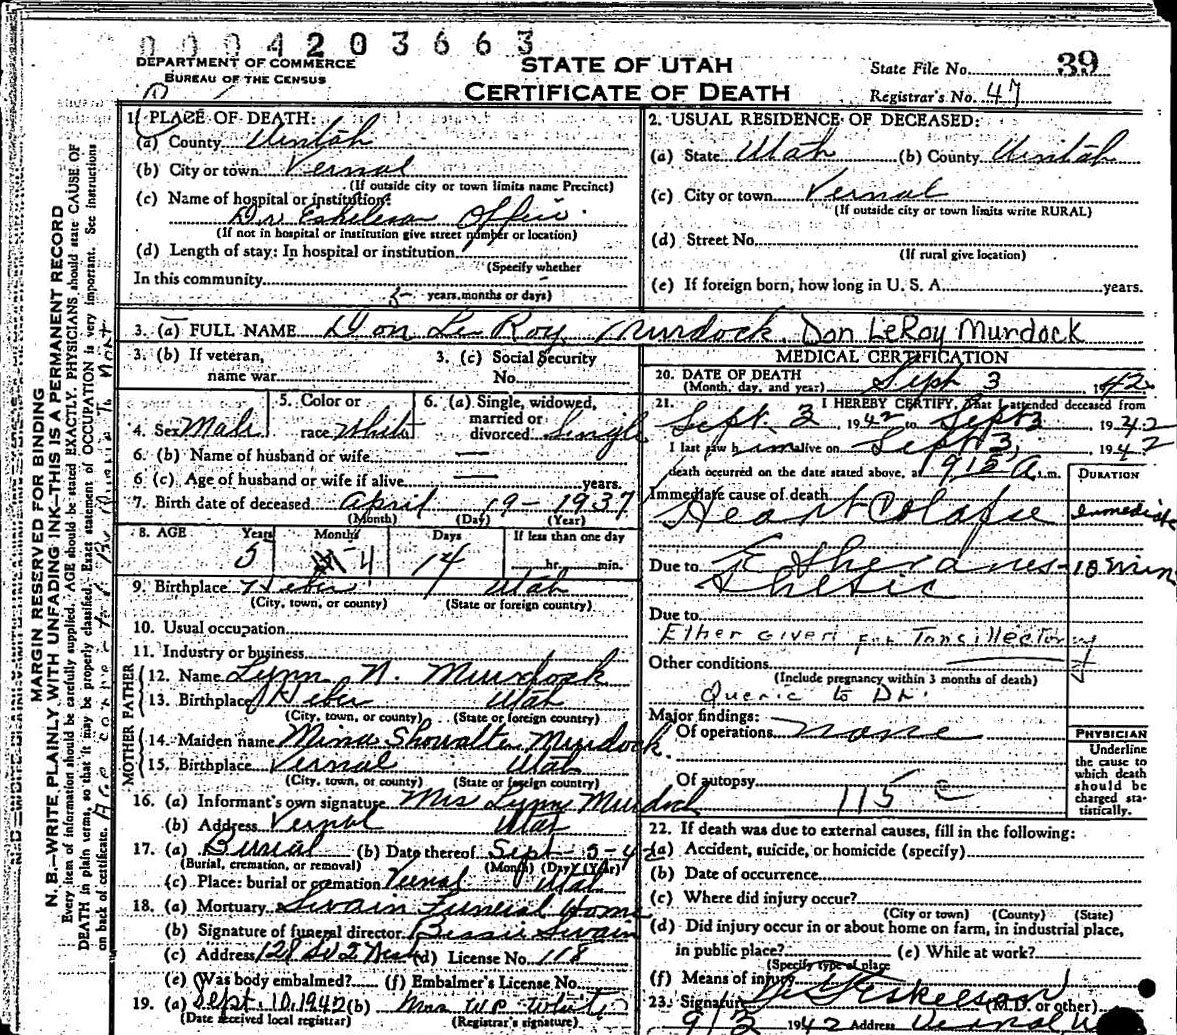 0004203663
DEPARTMENT OF COMMERCE
BUREAU OF THE CENSUS
STATE OF UTAH
CERTIFICATE OF DEATH
State File No. 39
Registrar's No. 47
MARGIN RESERVED FOR BINDING
N. B.—WRITE PLAINLY WITH UNFADING INK—THIS IS A PERMANENT RECORD
Every item of information should be carefully supplied. AGE should be stated EXACTLY. PHYSICIANS should state CAUSE OF
DEATH in plain terms, so that it may be properly classified. Exact statement of OCCUPATION is very important. See instructions
on back of certificate.
1. PLACE OF DEATH:
(a) County Uintah
(b) City or town Vernal
(If outside city or town limits name Precinct)
(c) Name of hospital or institution:
Dr. Eskelson Office
(If not in hospital or institution give street number or location)
(d) Length of stay: In hospital or institution
(Specify whether
In this community 5
years, months or days)
2. USUAL RESIDENCE OF DECEASED:
(a) State Utah (b) County Uintah
(c) City or town Vernal
(If outside city or town limits write RURAL)
(d) Street No.
(If rural give location)
(e) If foreign born, how long in U. S. A. years.
3. (a) FULL NAME Don Le Roy Murdock. Don LeRoy Murdock
3. (b) If veteran,
name war
3. (c) Social Security
No.
4. Sex Male
5. Color or
race White
6. (a) Single, widowed,
married or
divorced Single
6. (b) Name of husband or wife —
6 (c). Age of husband or wife if alive — years.
7. Birth date of deceased April 19- 1937
(Month) (Day) (Year)
8. AGE Years Months Days If less than one day
5 4 14 hr. min.
9. Birthplace Heber Utah
(City, town, or county) (State or foreign country)
10. Usual occupation
11. Industry or business
FATHER
12. Name Lynn N. Murdock
13. Birthplace Heber Utah
(City, town, or county) (State or foreign country)
MOTHER
14. Maiden name Mina Showalter Murdock
15. Birthplace Vernal Utah
(City, town, or county) (State or foreign country)
16. (a) Informant's own signature Mrs Lynn Murdock
(b) Address Vernal Utah
17. (a) Burial (b) Date thereof Sept-5-42
(Burial, cremation, or removal) (Month) (Day) (Year)
(c) Place: burial or cremation Vernal Utah
18. (a) Mortuary Swain Funeral Home
(b) Signature of funeral director Bessie Swain
(c) Address (d) License No. 118
(e) Was body embalmed? (f) Embalmer's License No.
19. (a) Sept. 10, 1942 (b) Mrs W.P. White
(Date received local registrar) (Registrar's signature)
MEDICAL CERTIFICATION
20. DATE OF DEATH
(Month, day, and year) Sept 3, 1942
21. I HEREBY CERTIFY, That I attended deceased from
Sept. 3 1942 to Sept 3 1942
I last saw him alive on Sept 3, 1942
death occurred on the date stated above, at 1915 A.m.
DURATION
Immediate cause of death
Heart Colapse immediate
Due to Ether anes- 10 min
thetic
Due to
Ether given for Tonsillectomy
Other conditions
(Include pregnancy within 3 months of death)
Queric to Dr.
Major findings:
Of operations none
Of autopsy
115 c
PHYSICIAN
Underline
the cause to
which death
should be
charged sta-
tistically.
22. If death was due to external causes, fill in the following:
(a) Accident, suicide, or homicide (specify)
(b) Date of occurrence
(c) Where did injury occur?
(City or town) (County) (State)
(d) Did injury occur in or about home on farm, in industrial place,
in public place? (e) While at work?
(Specify type of place
(f) Means of injury
23. Signature Eskelson (M.D. or other)
9/3 1942 Address Vernal, U